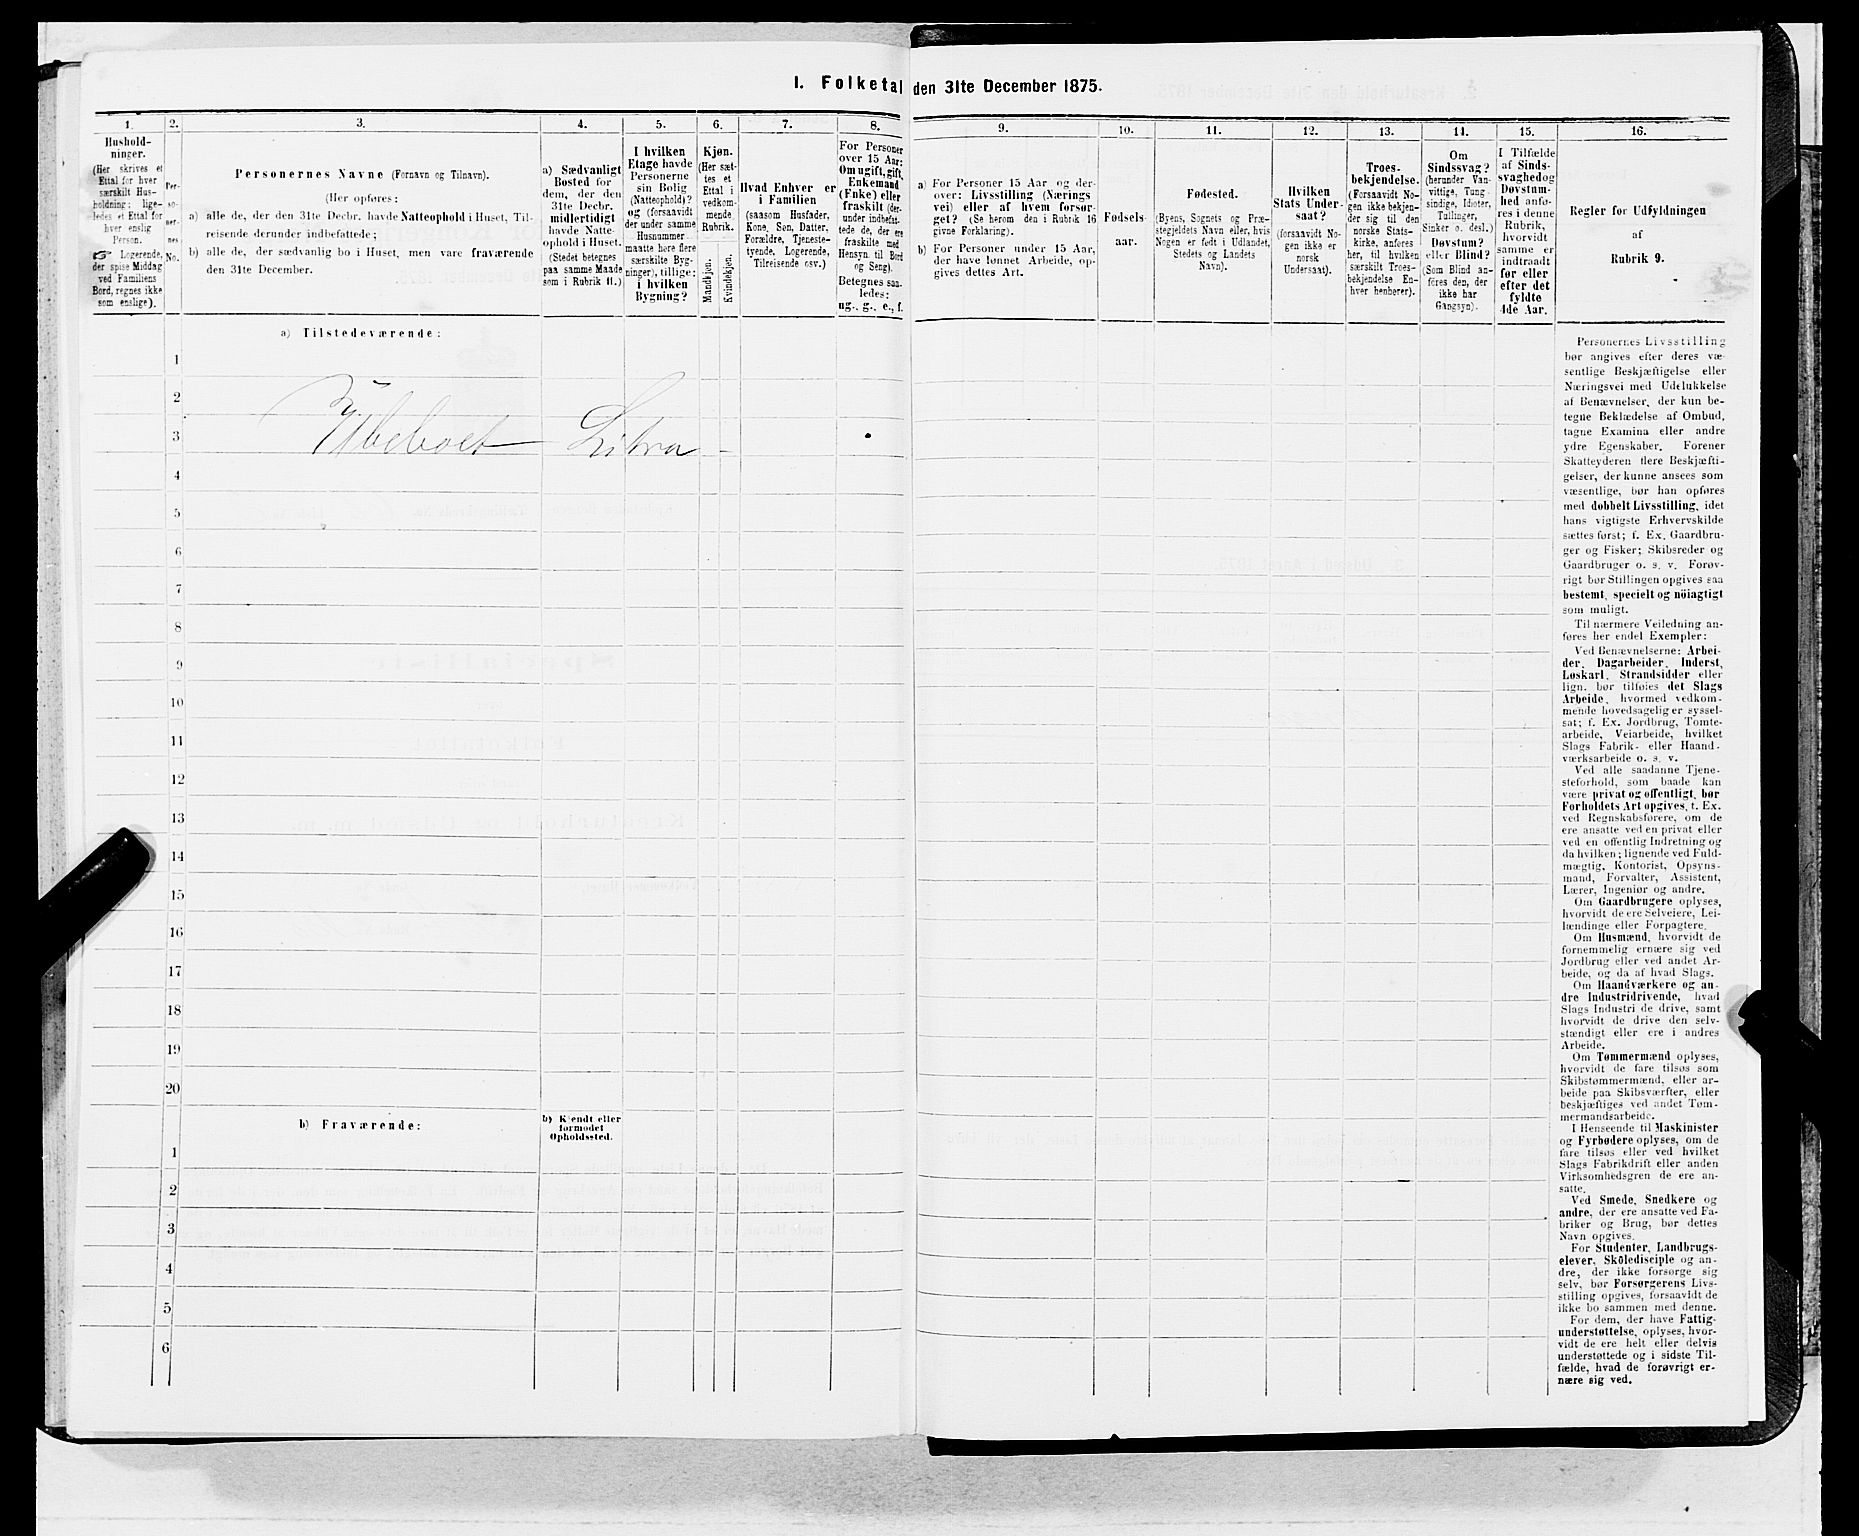 1. Folketal den 31te December 1875.
1.
Hushold-
ninger.
(Her skrives et
Ettal for hver
særskilt Hus-
holdning; lige-
ledes et Ettal for
hver enslig
Person.
☞ Logerende,
der spise Middag
ved Familiens
Bord, regnes ikke
som enslige).
2.
Per-
so-
ner-
nes
No.
3.
Personernes Navne (Fornavn og Tilnavn).
(Her opføres:
a) alle de, der den 31te Decbr. havde Natteophold i Huset, Til-
reisende derunder indbefattede;
b) alle de, der sædvanlig bo i Huset, men vare fraværende
den 31te December.
4.
a) Sædvanligt
Bosted for
dem, der den
31te Decbr.
midlertidigt
havde Natte-
ophold i Huset.
(Stedet betegnes
paa samme Maade
som i Rubrik 11.)
5.
I hvilken
Etage havde
Personerne
sin Bolig
(Natteophold)?
og (forsaavidt
der under samme
Husnummer
maatte høre flere
særskilte Byg-
ninger), tillige:
i hvilken
Bygning?
6.
Kjøn.
(Her sæt-
tes et
Ettal i
vedkom-
mende
Rubrik.
Mandkjøn.
Kvindekjøn.
7.
Hvad Enhver er
i Familien
(saasom Husfader,
Kone, Søn, Datter,
Forældre, Tjeneste-
tyende, Logerende,
Tilreisende osv.)
8.
For Personer
over 15 Aar:
Om ugift, gift,
Enkemand
(Enke) eller
fraskilt (der-
under indbefat-
tede de, der ere
fraskilte med
Hensyn til Bord
og Seng).
Betegnes saa-
ledes:
ug., g., e., f.
9.
a) For Personer 15 Aar og der-
over: Livsstilling (Nærings
vei) eller af hvem forsør-
get? (Se herom den i Rubrik 16
givne Forklaring).
b) For Personer under 15 Aar,
der have lønnet Arbeide, op-
gives dettes Art.
10.
Fødsels-
aar.
11.
Fødested.
(Byens, Sognets og Præ-
stegjeldets Navn eller, hvis
Nogen er født i Udlandet,
Stedets og Landets
Navn).
12.
Hvilken
Stats Under-
saat?
(forsaavidt No-
gen ikke er
norsk
Undersaat).
13.
Troes-
bekjendelse.
(Forsaavidt No-
gen ikke bekjen-
der sig til den
norske Stats-
kirke, anføres
her, til hvilken
særskilt Troes-
bekjendelse En-
hver henhører).
14.
Om
Sindssvag?
(herunder Van-
vittige, Tung-
sindige, Idioter,
Tullinger,
Sinker o. desl.)
Døvstum?
eller Blind?
(Som Blind an-
føres den, der
ikke har
Gangsyn).
15.
I Tilfælde
af Sinds-
svaghed og
Døvstum-
hed anfø-
res i denne
Rubrik,
hvorvidt
samme er
indtraadt
før eller
efter det
fyldte
4de Aar.
16.
Regler for Udfyldningen
af
Rubrik 9.
a) Tilstedeværende:
1
2
3 Ubeboet Litra -
4
5
6
7
8
9
10
11
12
13
14
15
16
17
18
19
20
b) Fraværende:
b) Kjendt eller
formodet
Opholdssted.
1
2
3
4
5
6
Personernes Livsstilling
bør angives efter deres væ-
sentlige Beskjæftigelse eller
Næringsvei med Udelukkelse
af Benævnelser, der kun be-
tegne Beklædelse af Ombud,
tagne Examina eller andre
ydre Egenskaber. Forener
Skatteyderen flere Beskjæfti-
gelser, der kunne ansees som
væsentlige, bør han opføres
med dobbelt Livsstilling, idet
hans vigtigste Erhvervskilde
sættes først; f. Ex. Gaardbru-
ger og Fisker; Skibsreder og
Gaardbruger o. s. v. Forøv-
rigt bør Stillingen opgives saa
bestemt, specielt og nöiagtigt
som muligt.
Til nærmere Veiledning an-
føres her endel Exempler:
Ved Benævnelserne: Arbei-
der, Dagarbeider, Inderst,
Løskarl, Strandsidder eller
lign. bør tilføies det Slags
Arbeide, hvormed vedkom-
mende hovedsagelig er syssel-
sat; f. Ex. Jordbrug, Tomte-
arbeide, Veiarbeide, hvilket
Slags Fabrik- eller Haand-
værksarbeide o. s. v.
Ved alle saadanne Tjene-
steforhold, som baade kan
være privat og offentligt, bør
Forholdets Art opgives, t. Ex.
ved Regnskabsførere, om de
ere ansatte ved en privat eller
ved en offentlig Indretning og
da hvilken; lignende ved Fuld-
mægtig, Kontorist, Opsyns-
mand, Forvalter, Assistent,
Lærer, Ingeniør og andre.
Om Gaardbrugere oplyses,
hvorvidt de ere Selveiere, Lei-
lændinge eller Forpagtere.
Om Husmænd, hvorvidt de
fornemmelig ernære sig ved
Jordbrug eller ved andet Ar-
beide, og da af hvad Slags.
Om Haandværkere og an-
dre Industridrivende, hvad
Slags Industri de drive, samt
hvorvidt de drive den selv-
stændigt eller ere i andres
Arbeide.
Om Tømmermænd oplyses,
hvorvidt de fare tilsøs som
Skibstømmermænd, eller ar-
beide paa Skibsværfter, eller
beskjæftiges ved andet Tøm-
mermandsarbeide.
I Henseende til Maskinister
og Fyrbødere oplyses, om de
fare tilsøs eller ved hvilket
Slags Fabrikdrift eller anden
Virksomhedsgren de ere an-
satte.
Ved Smede, Snedkere og
andre, der ere ansatte ved Fa-
briker og Brug, bør dettes
Navn opgives.
For Studenter, Landbrugs-
elever, Skoledisciple og an-
dre, der ikke forsørge sig
selv, bør Forsørgerens Livs-
stilling opgives, forsaavidt de
ikke bo sammen med denne.
For dem, der have Fattig-
understøttelse, oplyses, hvor-
vidt de ere helt eller delvis
understøttede og i sidste Til-
fælde, hvad de forøvrigt er-
nære sig ved.